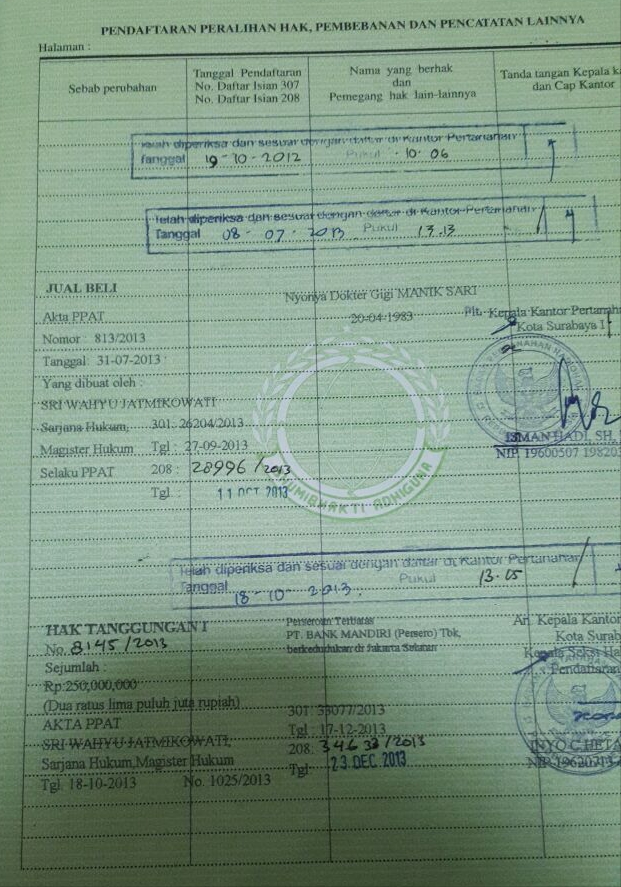 PENDAFTARAN PERALIHAN HAK, PEMBEBANAN DAN PENCATATAN LAINNYA
Halaman :
Sebab perubahan
Tanggal Pendaftaran
No. Daftar Isian 307
No. Daftar Isian 208
Nama yang berhak
dan
Pemegang hak lain-lainnya
Tanda tangan Kepala ka
dan Cap Kantor
Telah diperiksa dan sesuai dengan daftar di Kantor Pertanahan
Tanggal 19-10-2012 Pukul 10.06
Telah diperiksa dan sesuai dengan daftar di Kantor Pertanahan
Tanggal 08-07-2013 Pukul 13.13
JUAL BELI
Akta PPAT
Nomor : 813/2013
Tanggal : 31-07-2013
Yang dibuat oleh :
SRI WAHYU JATMIKOWATI
Sarjana Hukum,
Magister Hukum
Selaku PPAT
301: 26204/2013
Tgl : 27-09-2013
208 : 28996/2013
Tgl : 11 OCT 2013
Nyonya Dokter Gigi MANIK SARI
20-04-1983
Plt. Kepala Kantor Pertanaha
Kota Surabaya I
ISMAN HADI, SH,
NIP. 19600507 198203
BUMIBHAKTI ADHIGUNA
Telah diperiksa dan sesuai dengan daftar di Kantor Pertanahan
Tanggal 18-10-2013 Pukul 13.05
HAK TANGGUNGAN I
No. 8145/2013
Sejumlah :
Rp.250,000,000
(Dua ratus lima puluh juta rupiah)
AKTA PPAT
SRI WAHYU JATMIKOWATI,
Sarjana Hukum,Magister Hukum
Tgl. 18-10-2013 No. 1025/2013
301: 33077/2013
Tgl : 17-12-2013
208: 34638/2013
Tgl: 23 DEC 2013
Perseroan Terbatas
PT. BANK MANDIRI (Persero) Tbk,
berkedudukan di Jakarta Selatan
An. Kepala Kantor
Kota Surab
Kepala Seksi Ha
Pendaftaran
NIP. 19620713